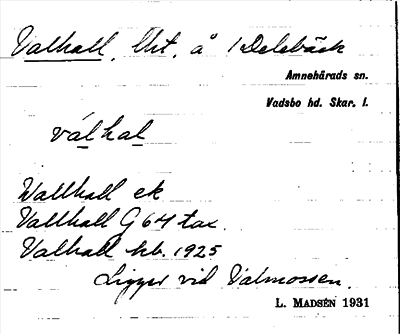 Valhall, Urt. å /Delebäck
Amnehärads sn.
Vadsbo hd. Skar. l.
válhal
Wallhall ek
Vallhall G 64 tax.
Valhall hb. 1925
Ligger vid Valmossen.
L. MADSÉN 1931